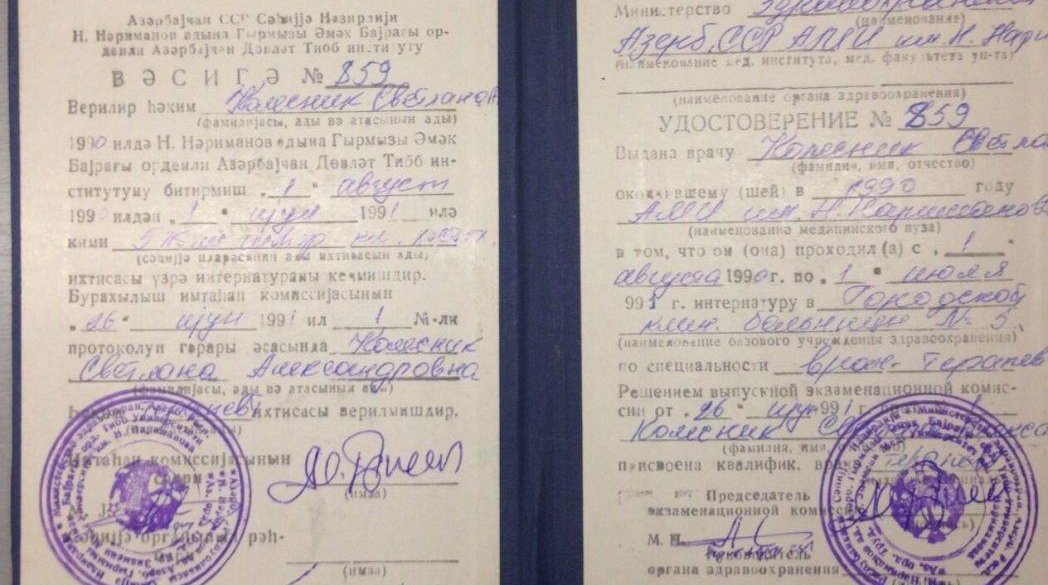 Азәрбајҹан ССР Сәһијјә Назирлији
Н. Нәриманов адына Гырмызы Әмәк Бајрағы ор-
денли Азәрбајҹан Дөвләт Тибб институту
ВӘСИГӘ № 859
Верилир һәким Колесник Светлана
(фамилијасы, ады вә атасынын ады)
1990 илдә Н. Нәриманов адына Гырмызы Әмәк
Бајрағы орденли Азәрбајҹан Дөвләт Тибб ин-
ститутуну битирмиш „1“ август
1990 илдән „1“ иjун 1991 илә
кими
(сәһијјә идарәсинин ады ихтисасын ады)
ихтисасы үзрә интернатураны кечмишдир.
Бурахылыш имтаһан комиссијасынын
„26“ иjун 1991 ил 1 №-ли
протоколун гәрары әсасында Колесник
Светлана Александровна
(фамилијасы, ады вә атасынын ады)
ихтисасы верилмишдир.
Имтаһан комиссијасынын
(имза)
М.
Сәһијјә органынын рәһ-
(имза)
Министерство здравоохранения
(наименование)
Азерб. ССР АМИ им. Н. Нари
(наименование мед. института, мед. факультета ун-та)
(наименование органа здравоохранения)
УДОСТОВЕРЕНИЕ № 859
Выдана врачу Колесник Светла
(фамилия, имя, отчество)
окончившему (шей) в 1990 году
АМИ им. Н. Нариманова
(наименование медицинского вуза)
в том, что он (она) проходил (а) с „1“
августа 1990 г. по „1“ июля
1991 г. интернатуру в Городской
клин. больнице № 5
(наименование базового учреждения здравоохранения)
по специальности врач-терапев
Решением выпускной экзаменационной комис-
сии от „26“ 1991 г. 1
Колесник
(фамилия, имя,
присвоена квалифик. врач терапев
Председатель
экзаменационной комисс
(имза)
М. П.
Руководитель
органа здравоохранения